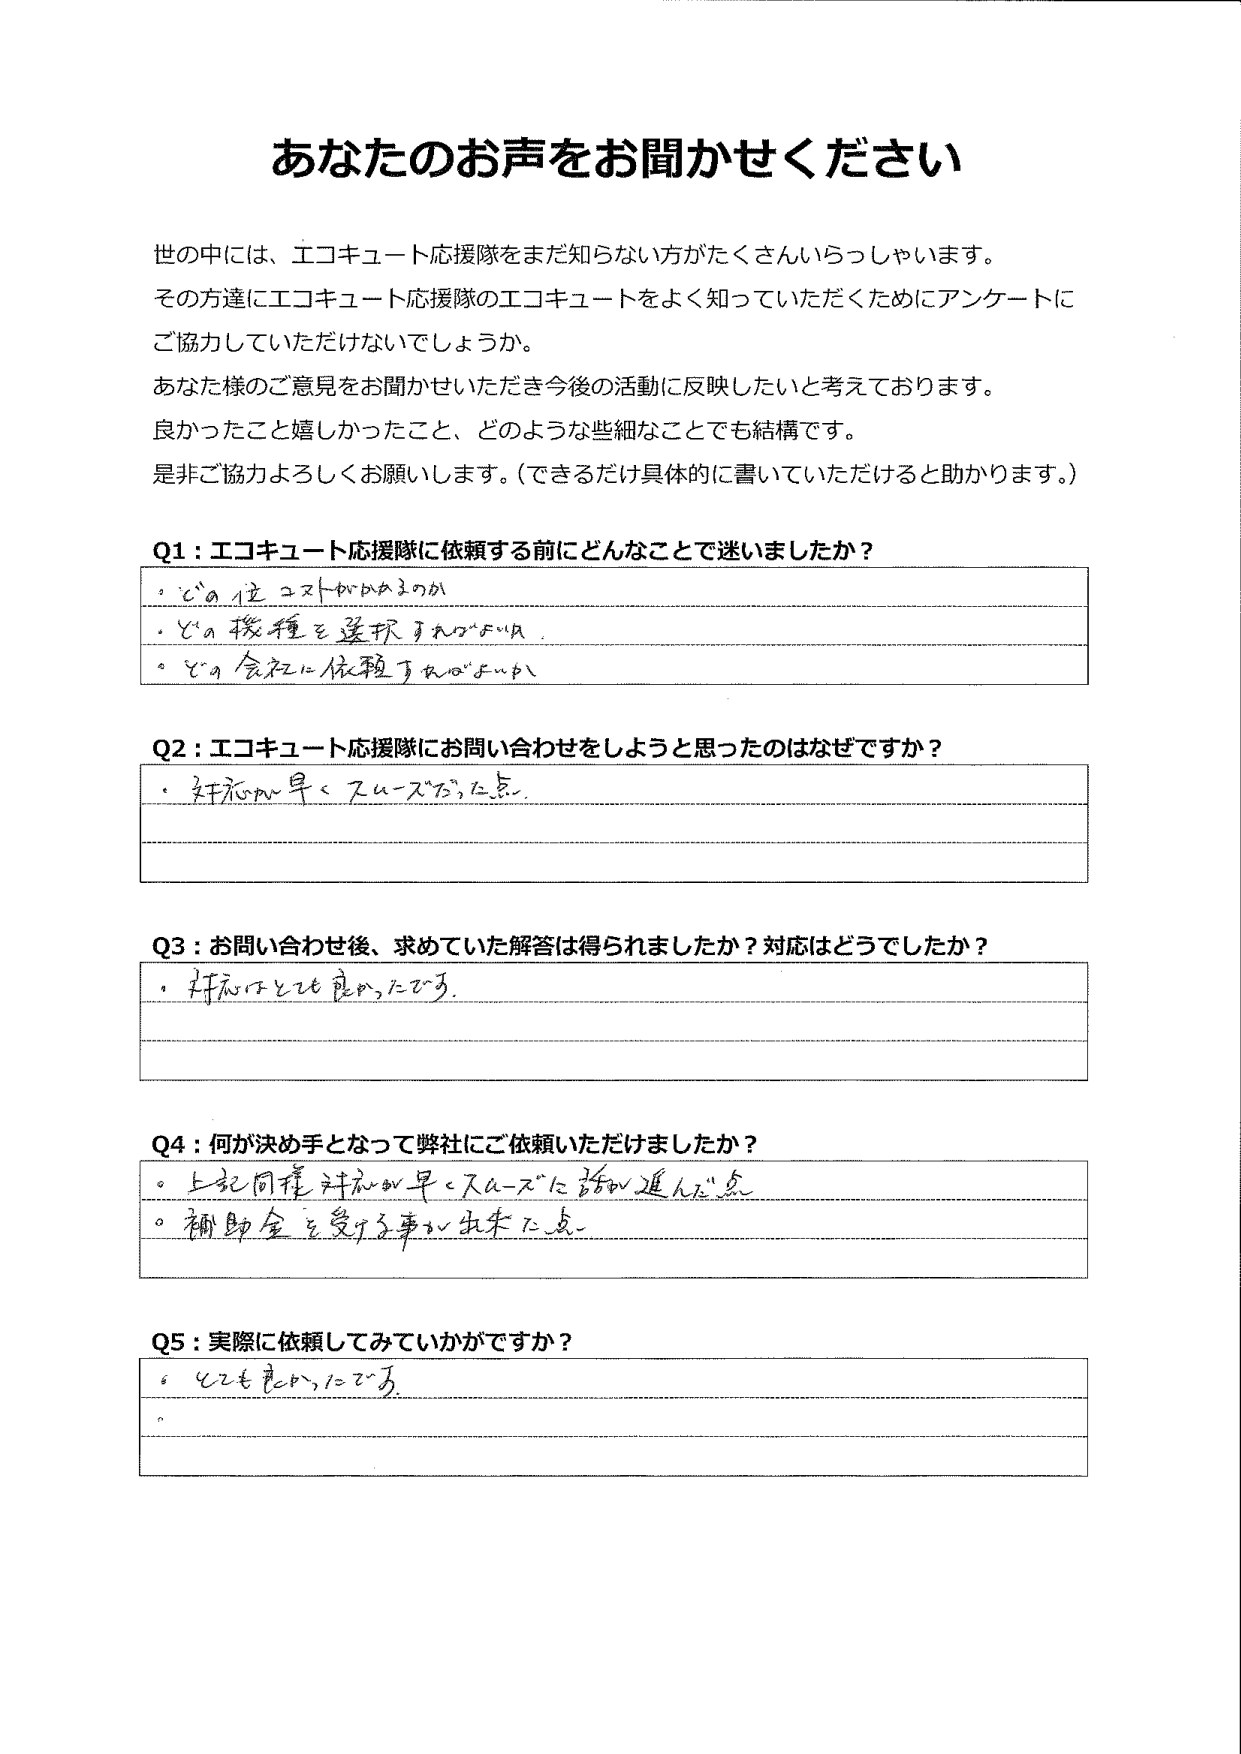 あなたのお声をお聞かせください
世の中には、エコキュート応援隊をまだ知らない方がたくさんいらっしゃいます。
その方達にエコキュート応援隊のエコキュートをよく知っていただくためにアンケートに
ご協力していただけないでしょうか。
あなた様のご意見をお聞かせいただき今後の活動に反映したいと考えております。
良かったこと嬉しかったこと、どのような些細なことでも結構です。
是非ご協力よろしくお願いします。（できるだけ具体的に書いていただけると助かります。）
Q1：エコキュート応援隊に依頼する前にどんなことで迷いましたか？
・どの位コストがかかるのか
・どの機種を選択すればよいか.
・どの会社に依頼すればよいか
Q2：エコキュート応援隊にお問い合わせをしようと思ったのはなぜですか？
・対応が早くスムーズだった点.
Q3：お問い合わせ後、求めていた解答は得られましたか？対応はどうでしたか？
・対応はとても良かったです.
Q4：何が決め手となって弊社にご依頼いただけましたか？
・上記同様対応が早くスムーズに話が進んだ点
・補助金を受ける事が出来た点
Q5：実際に依頼してみていかがですか？
・とても良かったです.
・